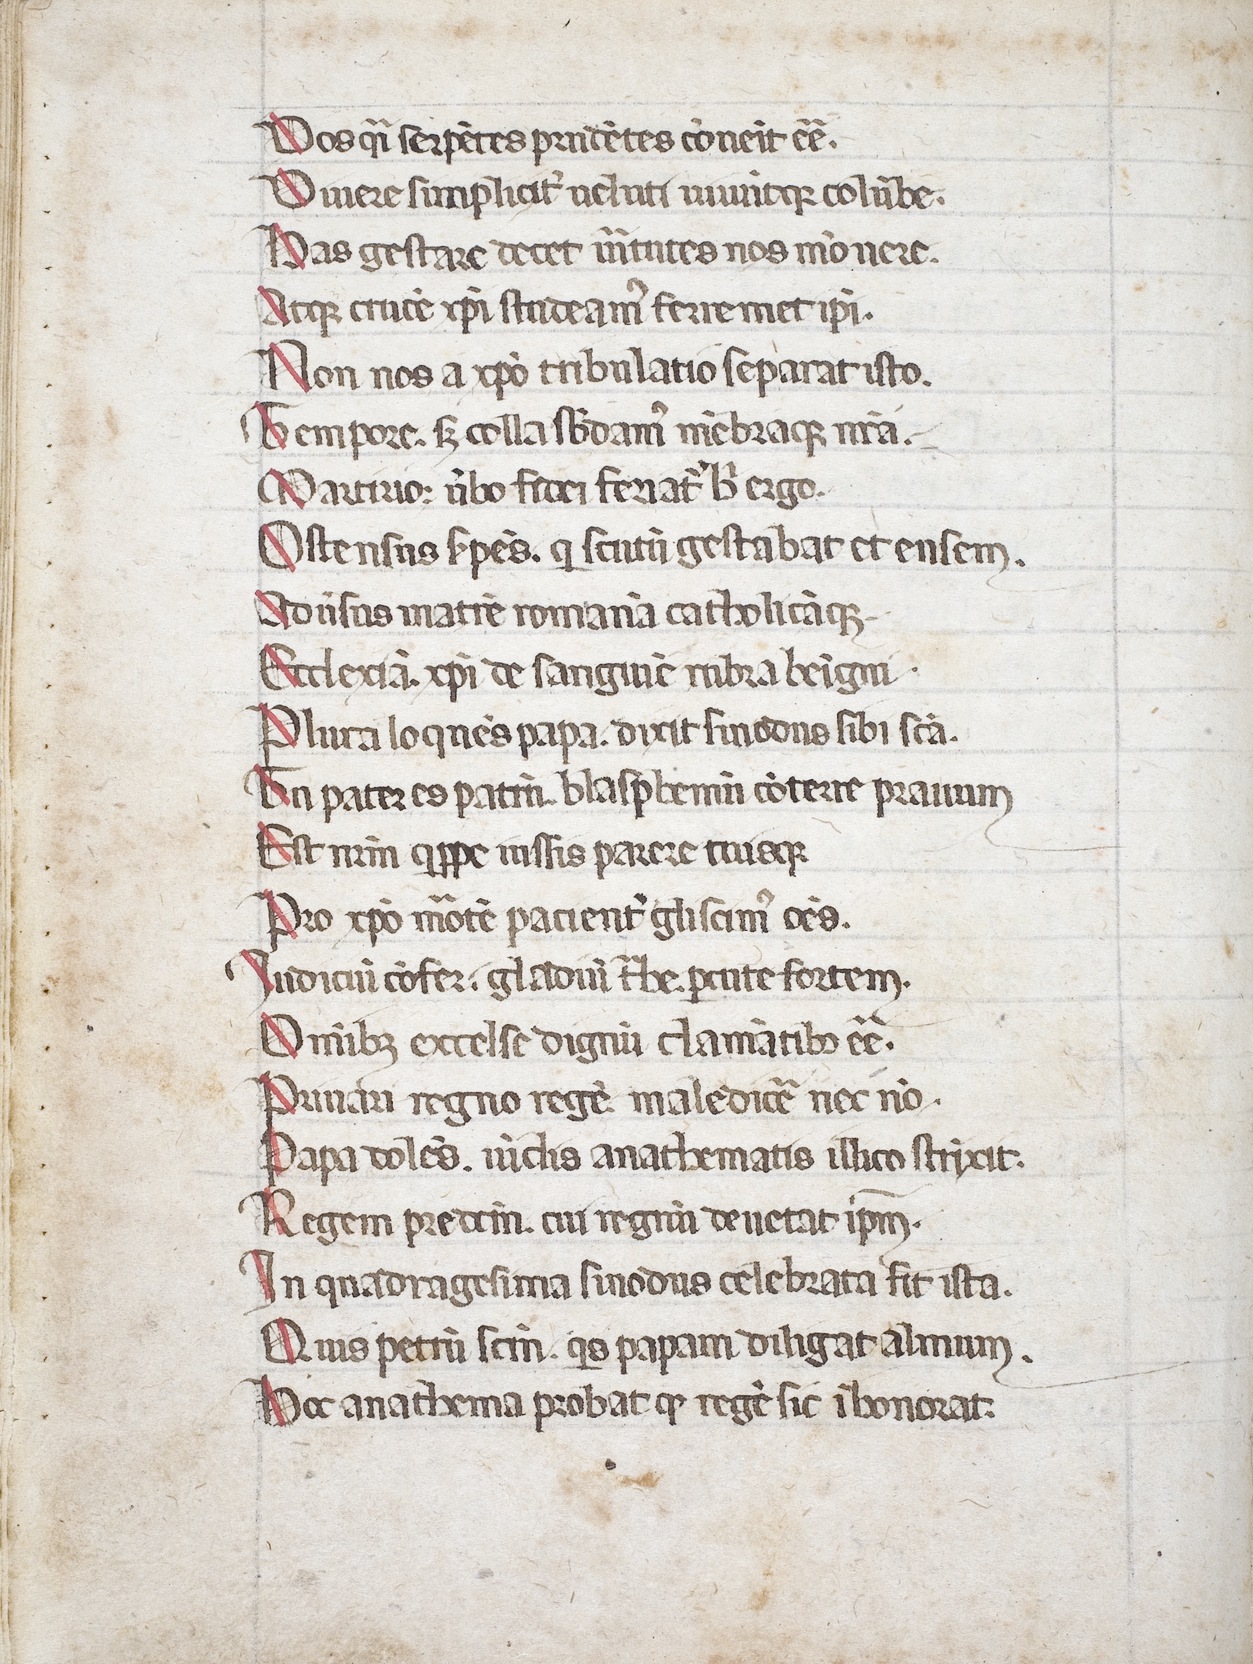 Uos qͥ serpētes prudētes cōueīt eē̄.
Viuere simplicit̾ ueluti uiuūtqꝫ colūbe.
Has gestare decet uͥtutes nos mōuere.
Atqꝫ crucē xp̄i studeamꝰ ferre met ip̄i.
Non nos a xp̄o tribulatio separat isto.
Tempore. sꝫ colla sb̄damꝰ mēbraqꝫ nr̄a.
Martirio: ūbo fidei feriat̾ ergo.
Ostensus s̄pēs. q scutū gestabat et ensem.
Aduͥsus matrē romanā catholicāqꝫ
Ecclexiā. xp̄i de sanguīe rubra beīgni.
Plura loquēs papa. dixit sinodus sibi sc̄a.
Tu pater es patrū. blasphemū cōterre prauum
Est nr̄m qꝓpe iussis parere tuisqꝫ
Pro xp̄o mͦtē pacient̾ gliscimꝰ oēs.
Iudiciū cōfer. gladiū tͣhe. ꝑcute fortem.
Omībꝫ excelse dignū clamātibꝰ eē̄.
Priuari regno regē. maledicē̄ nec nō.
Papa uolēs. uīclis anathematis illico strīxit.
Regem predcm̄. cui regnū deuetat ip̄m.
In quadragesima sinodus celebrata fit ista.
Quis petrū scm̄. qͥs papam diligat almum.
Hoc anathema probat qꝫ regē sic īhonorat.